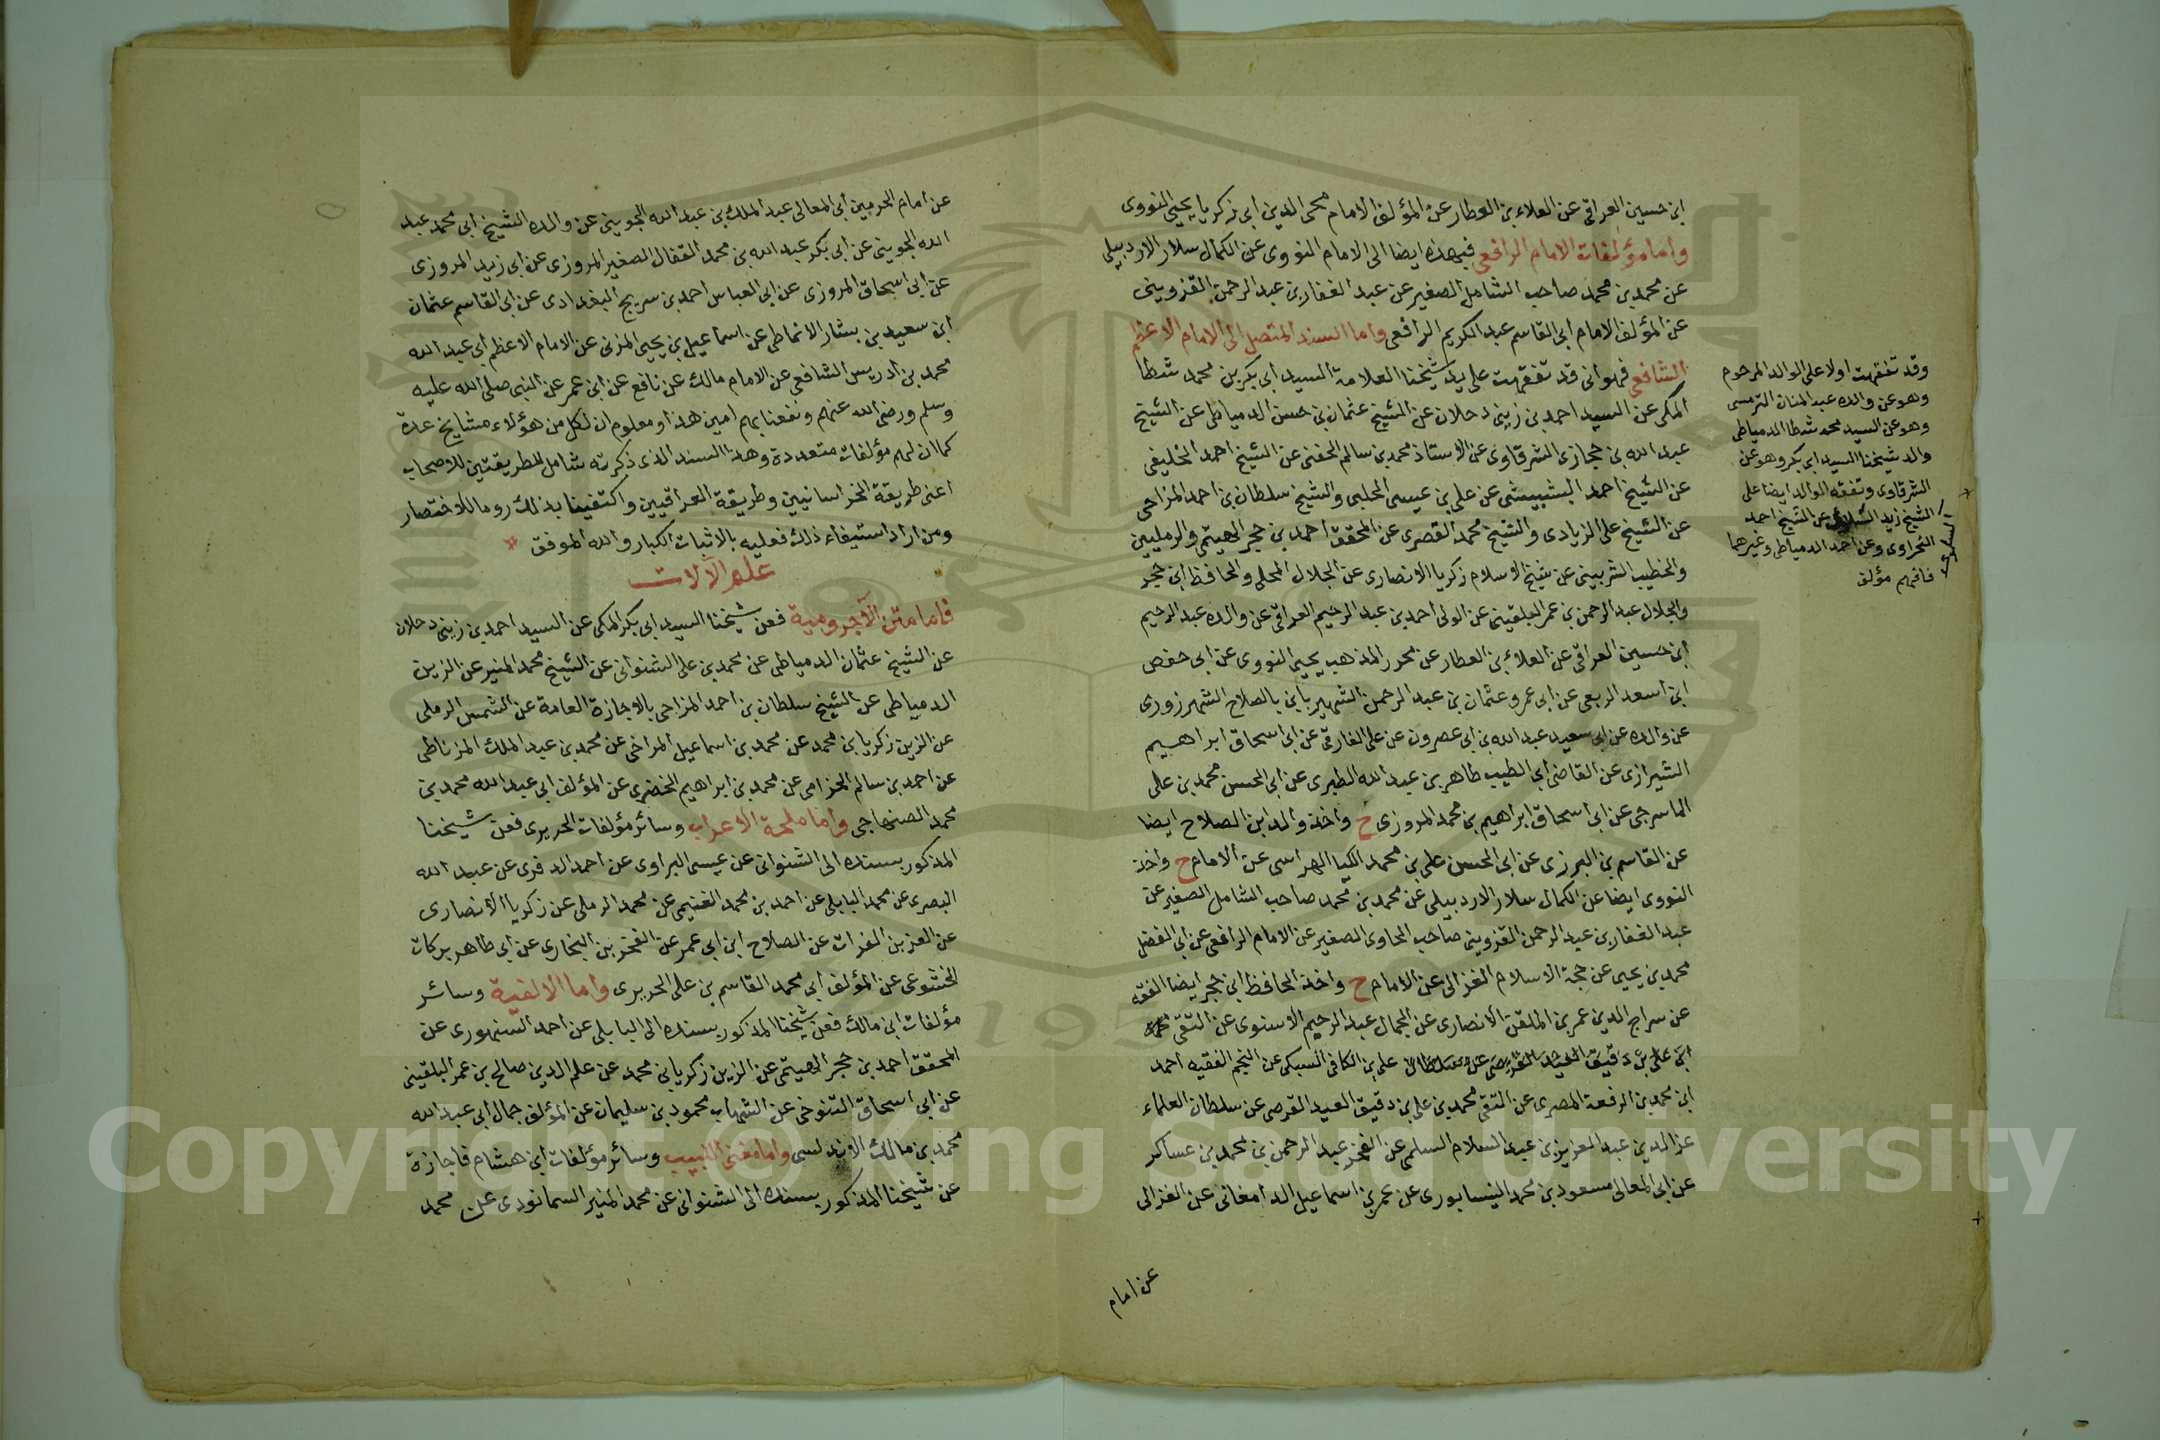 ابن حسين العراقي عن العلاء بن العطار عن المؤلف الامام محى الدين ابى زكريا يحيى النووى
واما مؤلفات الامام الرافعي فبهذه ايضا الى الامام النووى عن الكمال سلار الاردبيلى
عن محمد بن محمد صاحب الشامل الصغير عن عبد الغفار بن عبد الرحمن القزوينى
عن المؤلف الامام ابى القاسم عبد الكريم الرافعى واما السند المتصل الى الامام الاعظم
الشافعي فهو انى قد تفقهت على يد شيخنا العلامة السيد ابى بكر بن محمد شطا
المكى عن السيد احمد بن زينى دحلان عن الشيخ عثمان بن حسن الدمياطى عن الشيخ
عبد الله بن حجازى الشرقاوى عن الاستاذ محمد بن سالم الحفنى عن الشيخ احمد الخليفى
عن الشيخ احمد البشبيشى عن على بن عيسى الحلبى والشيخ سلطان بن احمد المزاحى
عن الشيخ على الزيادى والشيخ محمد القصرى عن المحقق احمد بن حجر الهيتمى والرمليين
والخطيب الشربينى عن شيخ الاسلام زكريا الانصارى عن الجلال المحلى والحافظ ابن حجر
والجلال عبد الرحمن بن عمر البلقينى عن الولى احمد بن عبد الرحيم العراقى عن والده عبد الرحيم
ابن حسين العراقى عن العلاء بن العطار عن محرر المذهب يحيى النووى عن ابى حفص
ابن اسعد الربعى عن ابى عمرو عثمان بن عبد الرحمن الشهير باين بالصلاح الشهرزورى
عن والده عن ابى سعيد عبد الله بن ابى عصرون عن على الفارقى عن ابى اسحاق ابراهيم
الشيرازى عن القاضى ابى الطيب طاهر بن عبد الله الطبرى عن ابى الحسن محمد بن على
الماسرجى عن ابى اسحاق ابراهيم بن محمد المروزى ح واخذ والد ابن الصلاح ايضا
عن القاسم بن البرزى عن ابى الحسن على بن محمد الكيا الهراسى عن الامام ح واخذ
النووى ايضا عن الكمال سلار الاردبيلى عن محمد بن محمد صاحب الشامل الصغير عن
عبد الغفار بن عبد الرحمن القزوينى صاحب الحاوى الصغير عن الامام الرافعى عن ابى الفضل
محمد بن يحيى عن حجة الاسلام الغزالى عن الامام ح واخذ الحافظ ابن حجر ايضا الفقه
عن سراج الدين عمر بن الملقن الانصارى عن الجمال عبد الرحيم الاسنوى عن التقى محمد
ابن على بن دقيق العيد على بن الكافى السبكى عن النجم الفقيه احمد
ابن محمد بن الرفعة المصرى عن التقى محمد بن على بن دقيق العيد القرصى عن سلطان العلماء
عز الدين عبد العزيز بن عبد السلام السلمى عن الفخر عبد الرحمن بن محمد بن عساكر
عن ابى المعالى مسعود بن محمد النيسابورى عن عمر بن اسماعيل الدامغانى عن الغزالى
عن امام
وقد تفقهت اولا على الوالد المرحوم
وهو عن والده عبد المنان الترمسى
وهو عن السيد محمد شطا الدمياطى
والد شيخنا السيد ابى بكر وهو عن
الشرقاوى وتفقه الوالد ايضا على
الشيخ زيد عن الشيخ احمد
النحراوى وعن احمد الدمياطى وغيرهما
فافهم مؤلف
عن امام الحرمين ابى المعالى عبد الملك بن عبد الله الجوينى عن والده الشيخ ابى محمد عبد
الله الجوينى عن ابى بكر عبد الله بن محمد القفال الصغير المروزى عن ابى زيد المروزى
عن ابى اسحاق المروزى عن ابى العباس احمد بن سريج البغدادى عن ابى القاسم عثمان
ابن سعيد بن بشار الانماطى عن اسماعيل بن يحيى المزنى عن الامام الاعظم ابى عبد الله
محمد بن ادريس الشافعى عن الامام مالك عن نافع عن ابن عمر عن النبى صلى الله عليه
وسلم ورضى الله عنهم ونفعنا بهم امين هذا ومعلوم ان لكل من هؤلاء مشايخ عدة
كما ان لهم مؤلفات متعددة وهذا السند الذى ذكرته شامل للطريقتين للاصحاب
اعنى طريقة الخراسانيين وطريقة العراقيين واكتفينا بذلك روما للاختصار
ومن اراد استيفاء ذلك فعليه بالاثبات الكبار والله الموفق
علم الآلات
فاما متن الآجرومية فعن شيخنا السيد ابى بكر المكى عن السيد احمد بن زينى دحلان
عن الشيخ عثمان الدمياطى عن محمد بن على الشنوانى عن الشيخ محمد المنير عن الزين
الدمياطى عن الشيخ سلطان بن احمد المزاحى بالاجازة العامة عن الشمس الرملى
عن الزين زكريا بن محمد عن محمد بن اسماعيل المراغى عن محمد بن عبد الملك المرناطى
عن احمد بن سالم الجزامى عن محمد بن ابراهيم الحضرى عن المؤلف ابى عبد الله محمد بن
محمد الصنهاجى واما ملحة الاعراب وسائر مؤلفات الحريرى فعن شيخنا
المذكور بسنده الى الشنوانى عن عيسى البراوى عن احمد الدفرى عن عبد الله
البصرى عن محمد البابلى عن احمد بن محمد الغنيمى عن محمد الرملى عن زكريا الانصارى
عن العز بن الفرات عن الصلاح ابن ابى عمر عن الفخر بن البخارى عن ابى طاهر بركات
الخشوعى عن المؤلف ابى محمد القاسم بن على الحريرى واما الالفية وسائر
مؤلفات ابن مالك فعن شيخنا المذكور بسنده الى البابلى عن احمد السنهورى عن
المحقق احمد بن حجر الهيتمى عن الزين زكريا بن محمد عن علم الدين صالح بن عمر البلقينى
عن ابى اسحاق التنوخى عن الشهاب محمود بن سليمان عن المؤلف جمال ابى عبد الله
محمد بن مالك الاندلسى واما مغنى اللبيب وسائر مؤلفات ابن هشام فاجازة
عن شيخنا المذكور بسنده الى الشنوانى عن محمد المنير السمانودى عن محمد
Copyright © King Saud University